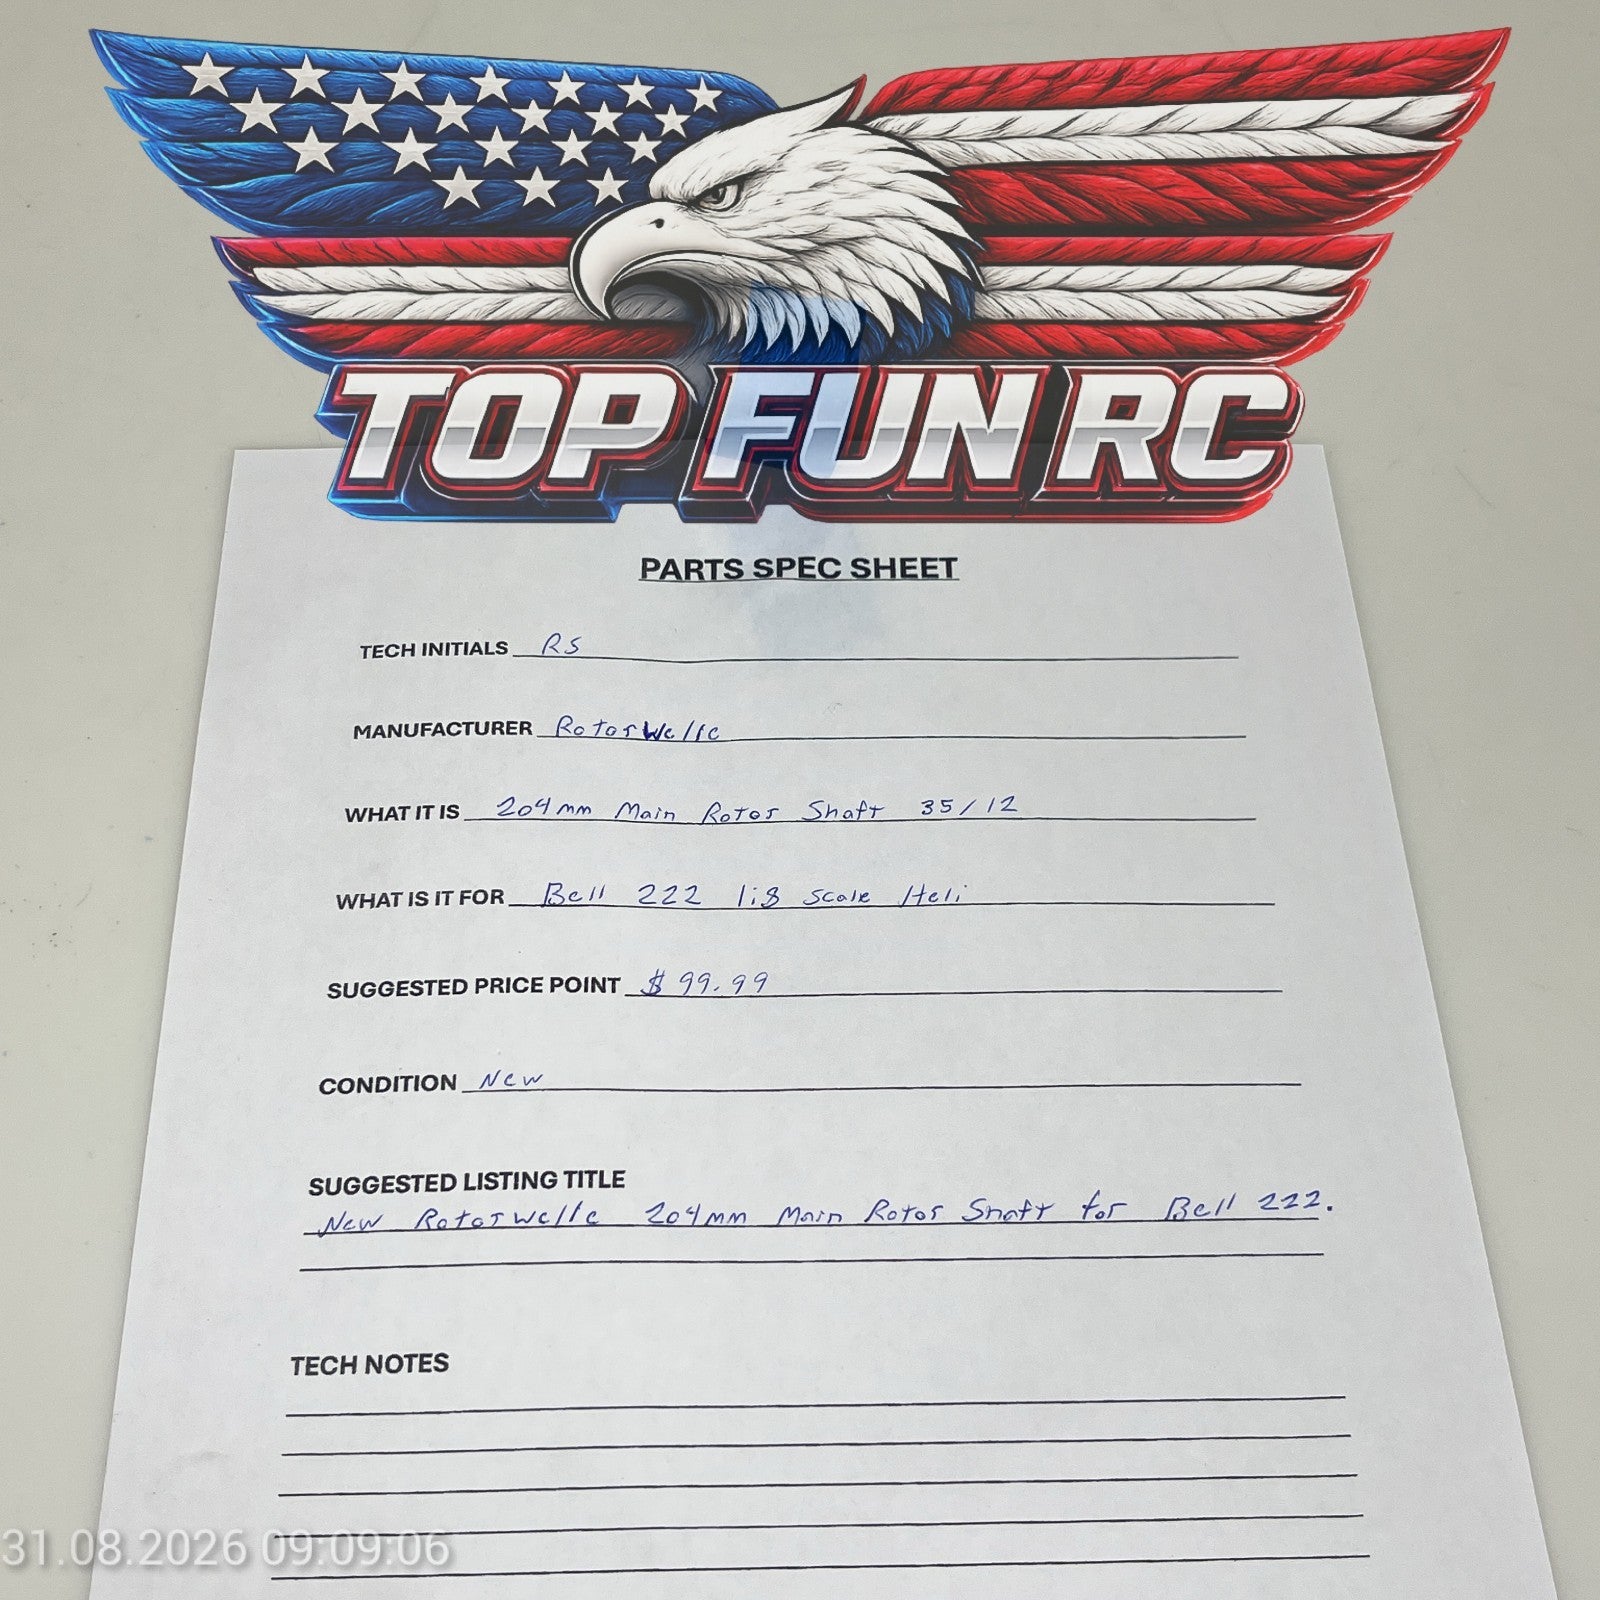 TOP FUN RC
PARTS SPEC SHEET
TECH INITIALS RS
MANUFACTURER RotorWelle
WHAT IT IS 204mm Main Rotor Shaft 35/12
WHAT IS IT FOR Bell 222 1:8 Scale Heli
SUGGESTED PRICE POINT $ 99.99
CONDITION New
SUGGESTED LISTING TITLE
New Rotorwelle 204mm Main Rotor Shaft for Bell 222.
TECH NOTES
31.08.2026 09:09:06